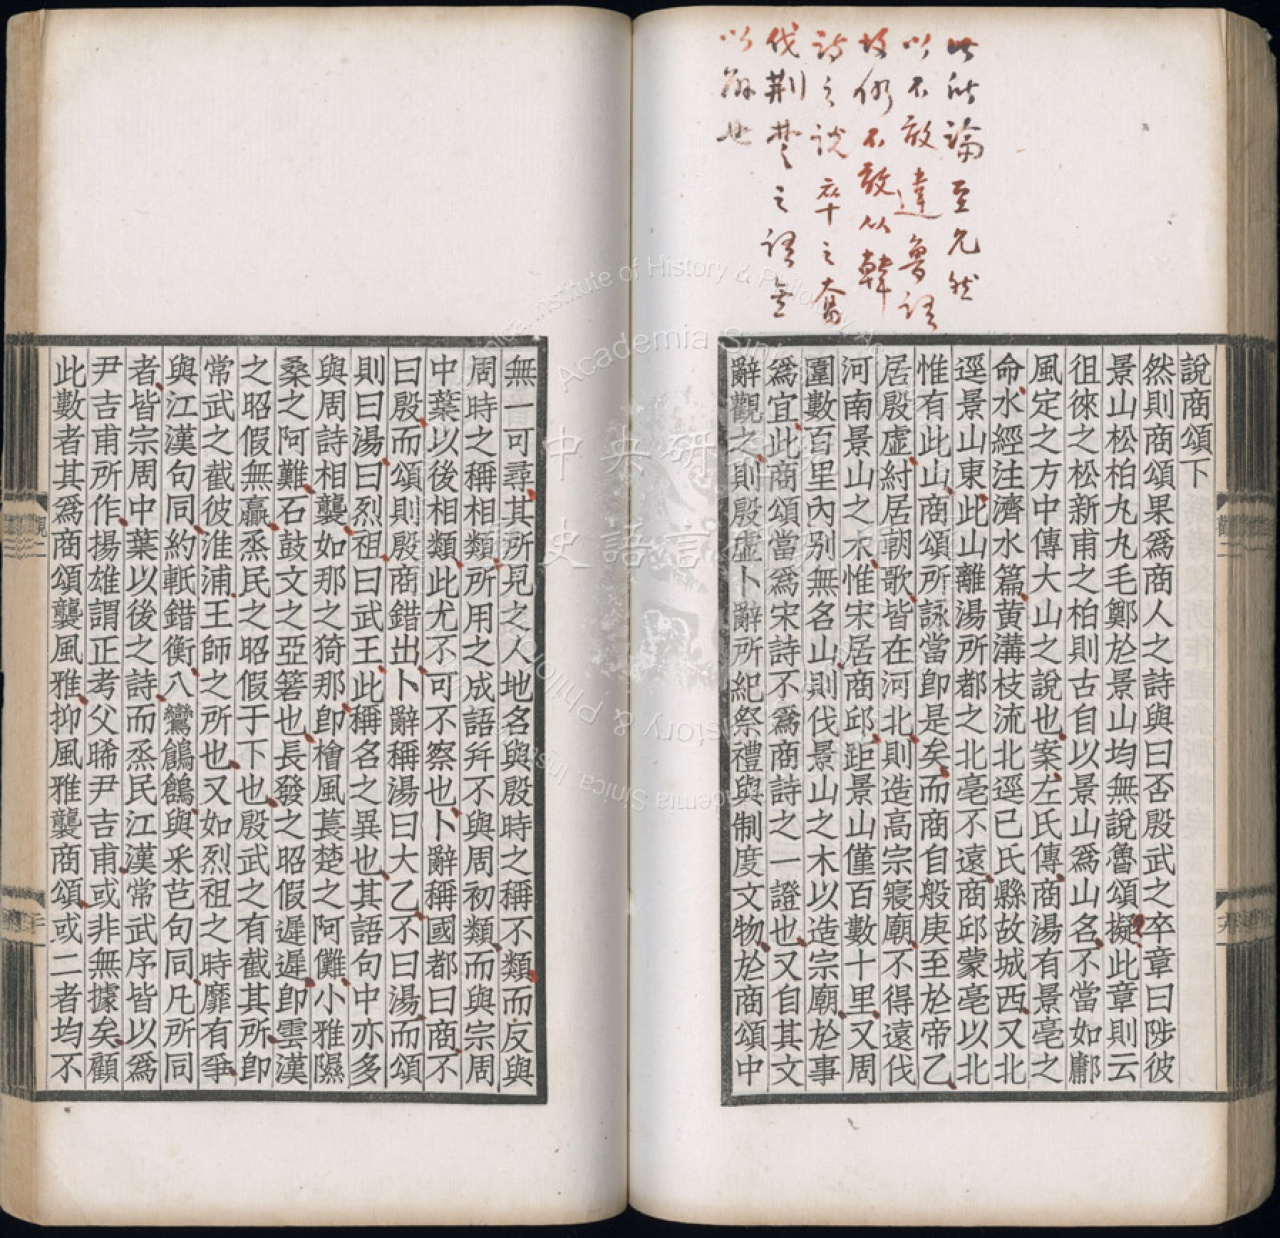 此所論至允然
以不敢違魯語
故仍不敢從韓
詩之說卒之奮
伐荆楚之語無
以解也
說商頌下
然則商頌果爲商人之詩與曰否殷武之卒章曰陟彼
景山松柏九九毛鄭於景山均無說魯頌擬此章則云
徂徠之松新甫之柏則古自以景山爲山名不當如鄘
風定之方中傳大山之說也案左氏傳商湯有景亳之
命水經注濟水篇黃溝枝流北逕己氏縣故城西又北
逕景山東此山離湯所都之北亳不遠商邱蒙亳以北
惟有此山商頌所詠當卽是矣而商自般庚至於帝乙
居殷虛紂居朝歌皆在河北則造高宗寢廟不得遠伐
河南景山之木惟宋居商邱距景山僅百數十里又周
圍數百里內別無名山則伐景山之木以造宗廟於事
爲宜此商頌當爲宋詩不爲商詩之一證也又自其文
辭觀之則殷虛卜辭所紀祭禮與制度文物於商頌中
無一可尋其所見之人地名與殷時之稱不類而反與
周時之稱相類所用之成語幷不與周初類而與宗周
中葉以後相類此尤不可不察也卜辭稱國都曰商不
曰殷而頌則殷商錯出卜辭稱湯曰大乙不曰湯而頌
則曰湯曰烈祖曰武王此稱名之異也其語句中亦多
與周詩相襲如那之猗那卽檜風萇楚之阿儺小雅隰
桑之阿難石鼓文之亞箬也長發之昭假遲遲卽雲漢
之昭假無贏烝民之昭假于下也殷武之有截其所卽
常武之截彼淮浦王師之所也又如烈祖之時靡有爭
與江漢句同約軧錯衡八鸞鶬鶬與采芑句同凡所同
者皆宗周中葉以後之詩而烝民江漢常武序皆以爲
尹吉甫所作揚雄謂正考父睎尹吉甫或非無據矣顧
此數者其爲商頌襲風雅抑風雅襲商頌或二者均不
中央研究院
史語言研究所